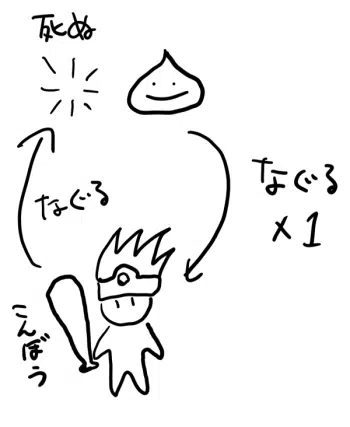 死ぬ
なぐる
なぐる
×1
こんぼう